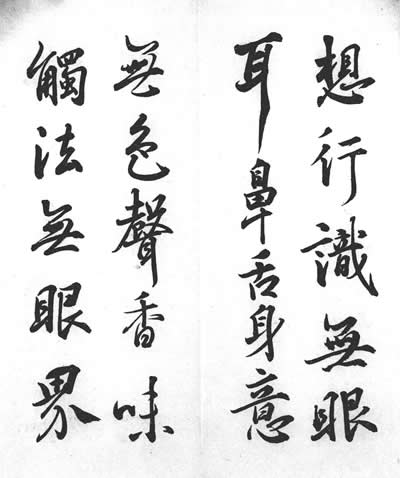 想行識無眼
耳鼻舌身意
無色聲香味
觸法無眼界